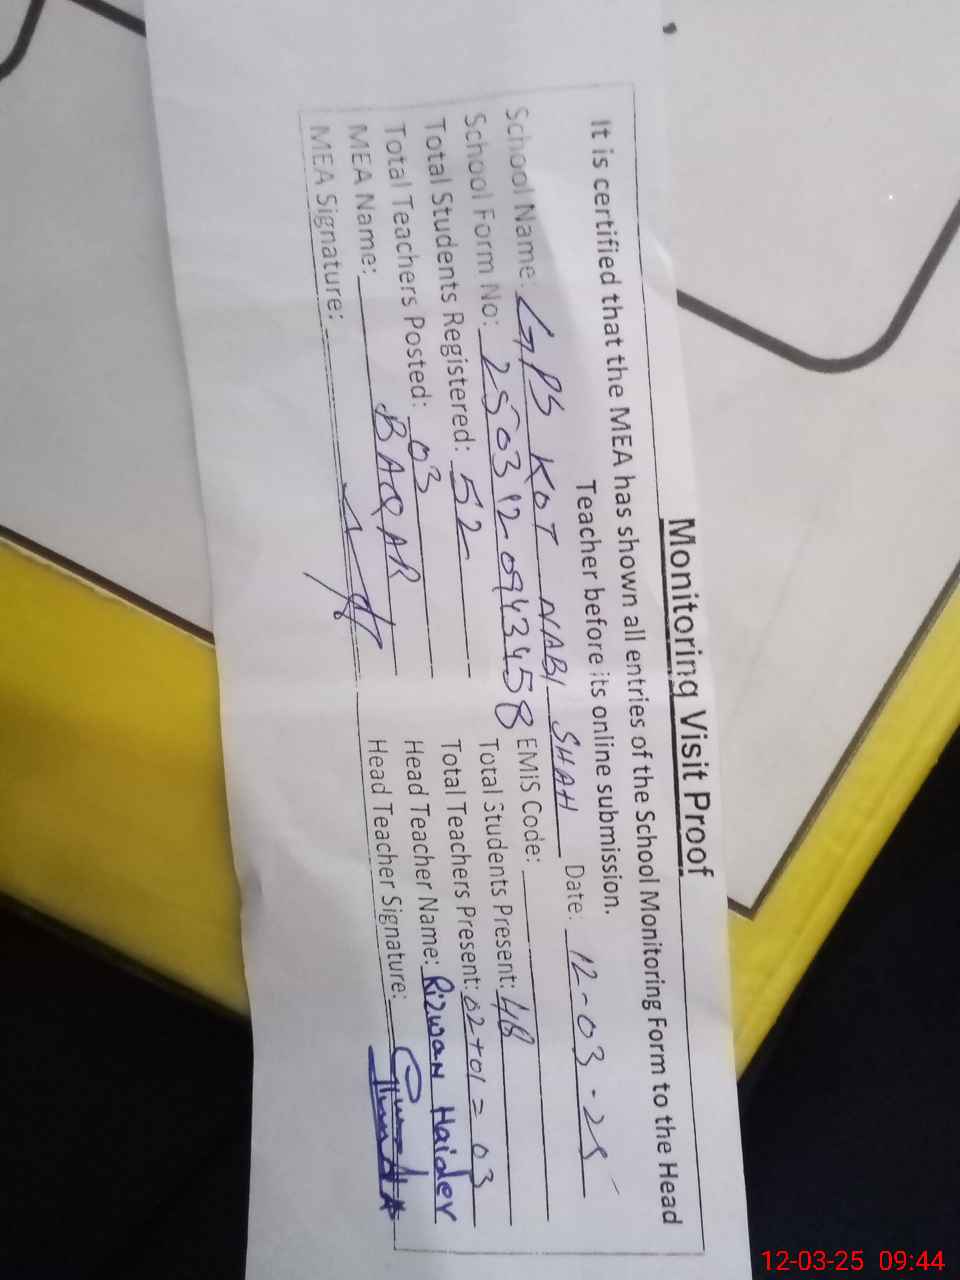 Monitoring Visit Proof
It is certified that the MEA has shown all entries of the School Monitoring Form to the Head
Teacher before its online submission.
School Name: GPS KOT NABI SHAH Date: 12-03-25
School Form No: 250312-0943458 EMIS Code:
Total Students Registered: 52 Total Students Present: 48
Total Teachers Posted: 03 Total Teachers Present: 02+01=03
MEA Name: BAQAR Head Teacher Name: Rizwan Haider
MEA Signature: Head Teacher Signature:
12-03-25 09:44